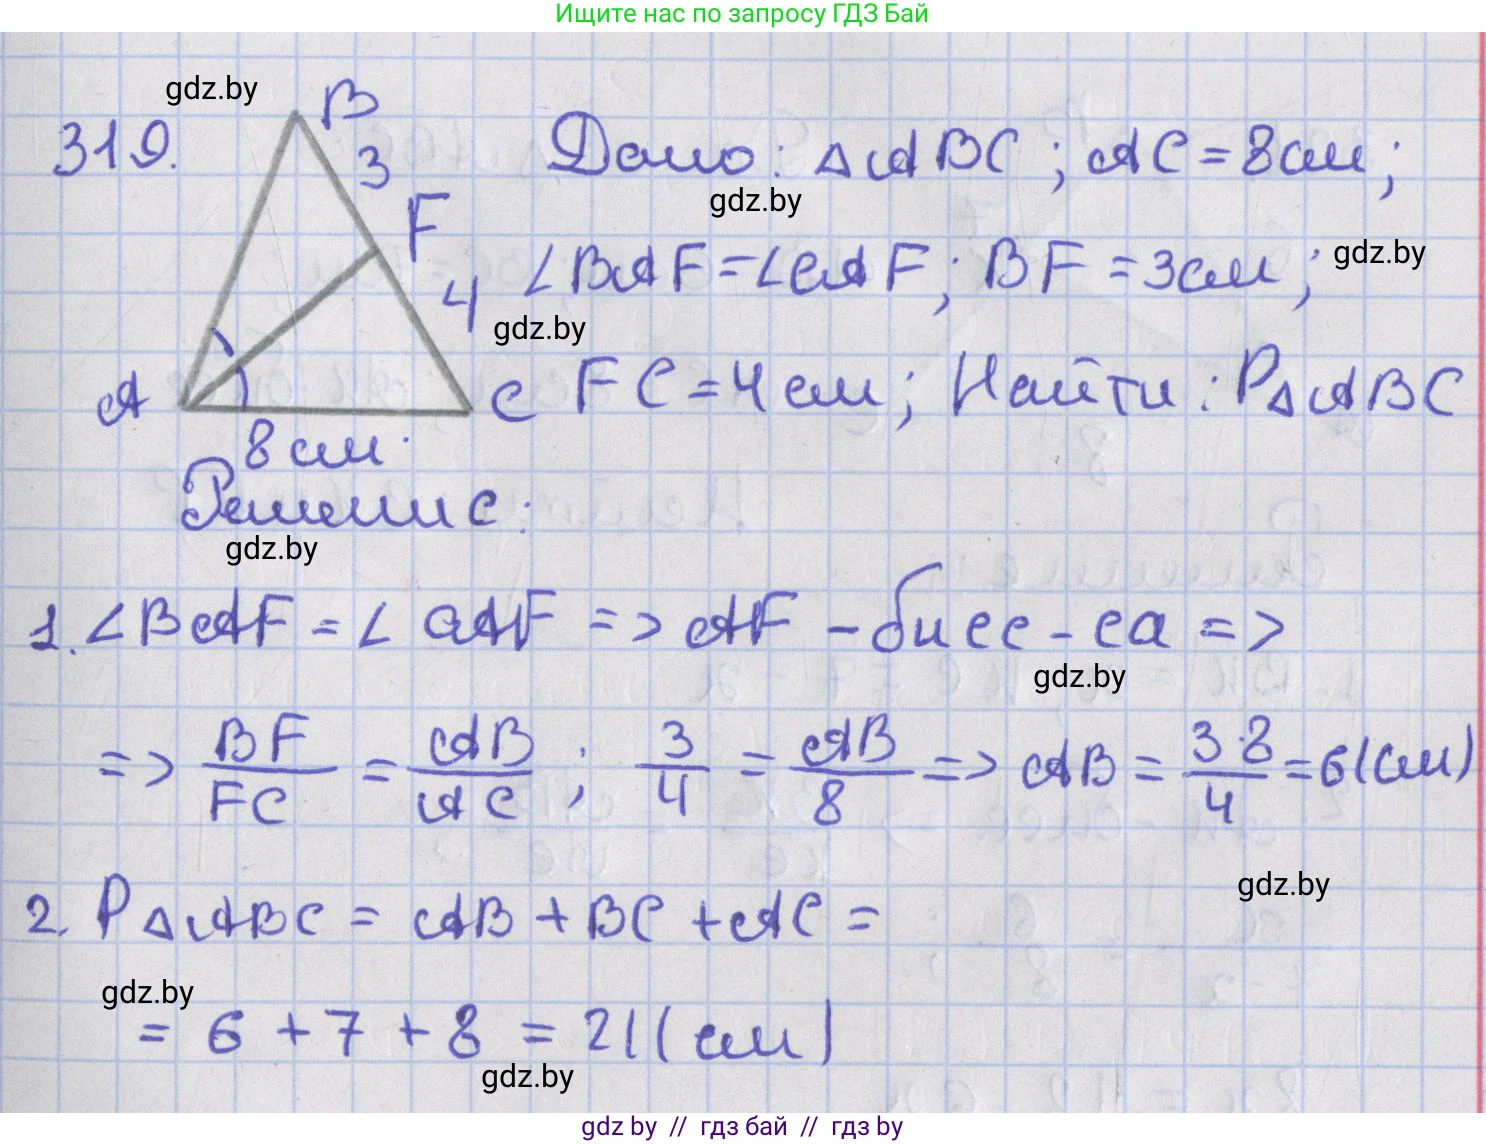 Ищите нас по запросу ГДЗ Бай
gdz.by
319.
B
3
F
4
A
C
8 см
Дано: △ABC; AC = 8см;
gdz.by
∠BAF = ∠CAF; BF = 3см;
gdz.by
gdz.by
FC = 4см; Найти: P△ABC
Решение:
gdz.by
1. ∠BAF = ∠CAF => AF - бисс-са =>
gdz.by
=> BF/FC = AB/AC; 3/4 = AB/8 => AB = 3·8/4 = 6(см)
gdz.by
2. P△ABC = AB + BC + AC =
gdz.by
= 6 + 7 + 8 = 21(см)
gdz.by
gdz by // гдз бай // гдз by